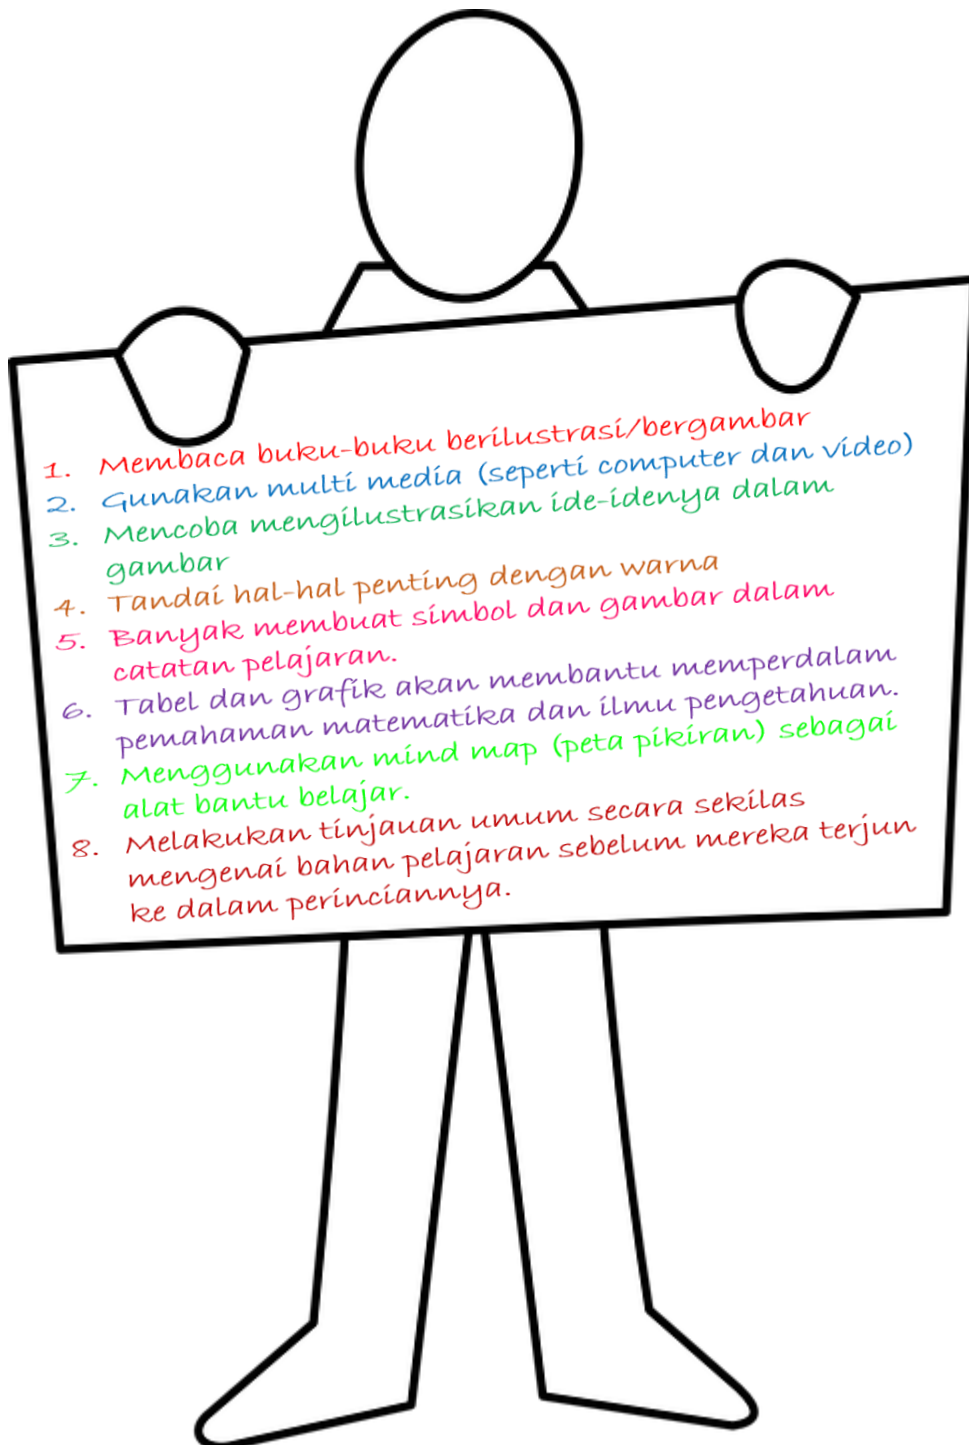 1. Membaca buku-buku berilustrasi/bergambar
2. Gunakan multi media (seperti computer dan video)
3. Mencoba mengilustrasikan ide-idenya dalam
gambar
4. Tandai hal-hal penting dengan warna
5. Banyak membuat simbol dan gambar dalam
catatan pelajaran.
6. Tabel dan grafik akan membantu memperdalam
pemahaman matematika dan ilmu pengetahuan.
7. Menggunakan mind map (peta pikiran) sebagai
alat bantu belajar.
8. Melakukan tinjauan umum secara sekilas
mengenai bahan pelajaran sebelum mereka terjun
ke dalam perinciannya.